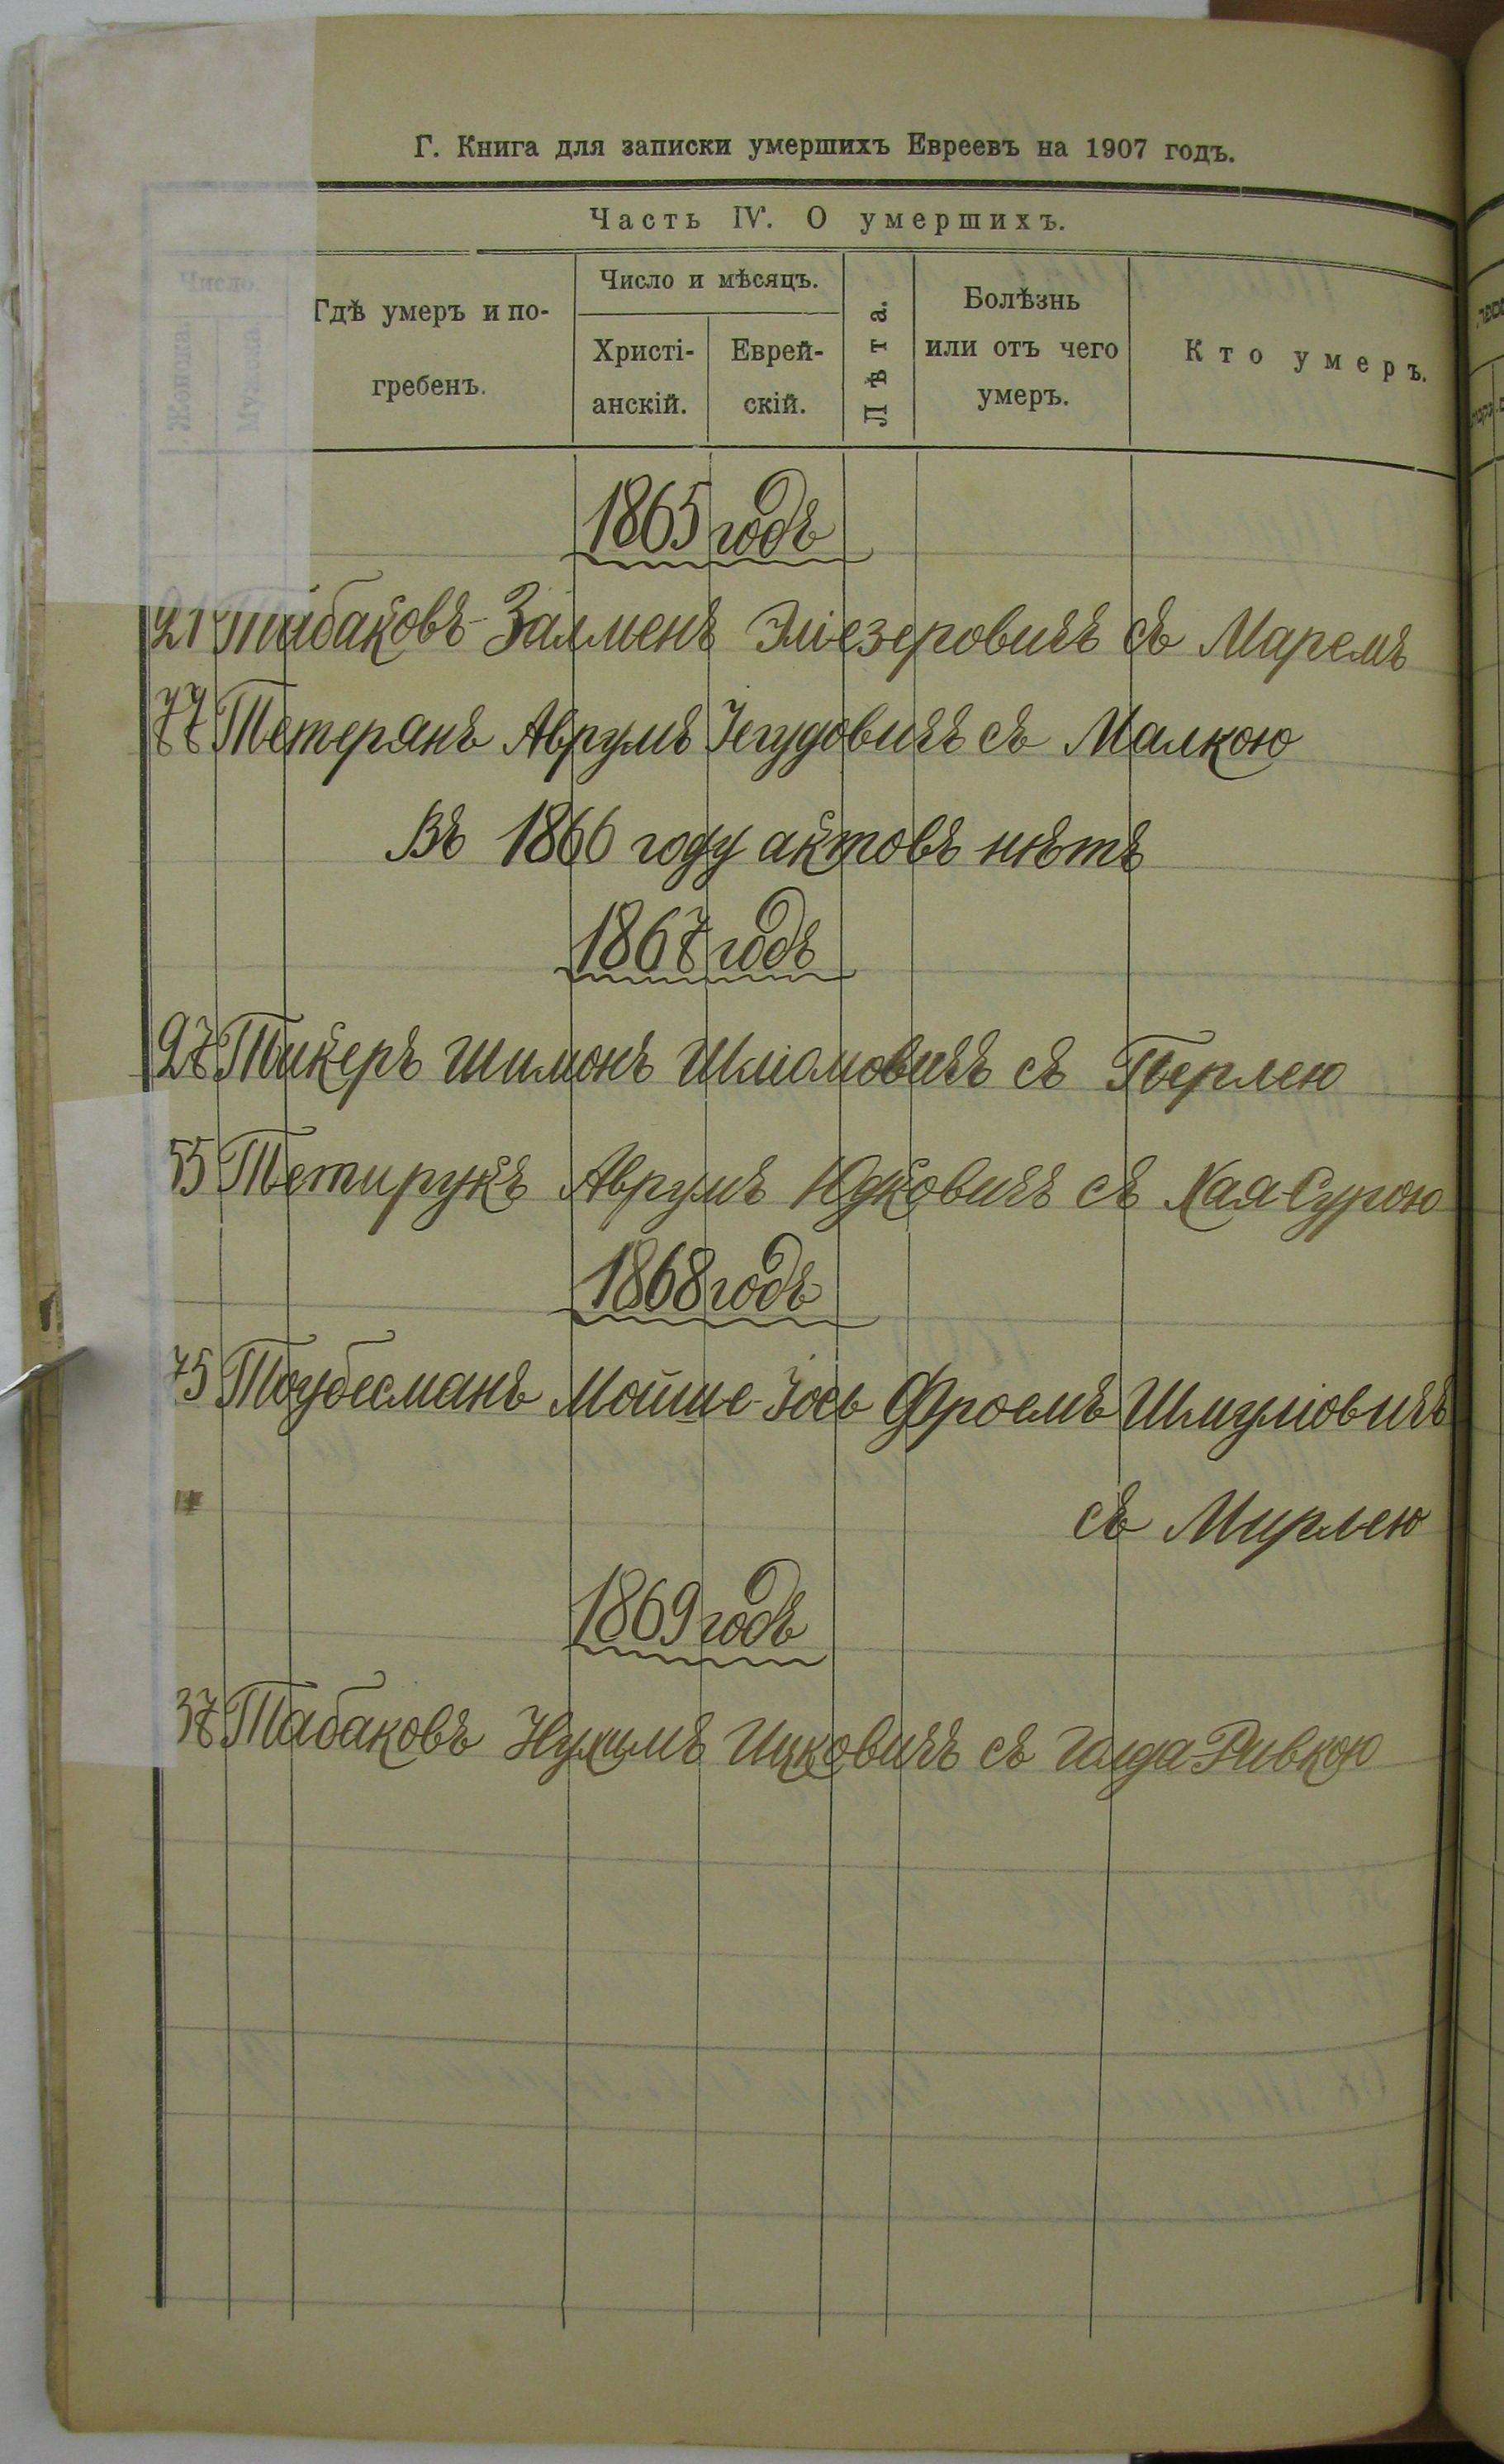 Г. Книга для записки умершихъ Евреевъ на 1907 годъ.
Часть IV. О умершихъ.
Число.
Женска
Мужска
Гдѣ умеръ и по-
гребенъ.
Число и мѣсяцъ.
Христі-
анскій.
Еврей-
скій.
Лѣта.
Болѣзнь
или отъ чего
умеръ.
Кто умеръ.
1865 годъ
21 Табаковъ-Залменъ Эліезеровичъ съ Маремъ
77 Тетерянъ Аврумъ Іегудовичъ съ Малкою
Въ 1866 году актовъ нѣтъ
1867 годъ
27 Тикеръ Шимонъ Шліомовичъ съ Перлею
55 Тетирукъ Аврумъ Юдковичъ съ Хая-Сурою
1868 годъ
75 Тоубесманъ Мойше-Іось Фроемъ Шмуліовичъ
съ Мирлею
1869 годъ
37 Табаковъ Нухимъ Ицковичъ съ Голда Ривкою